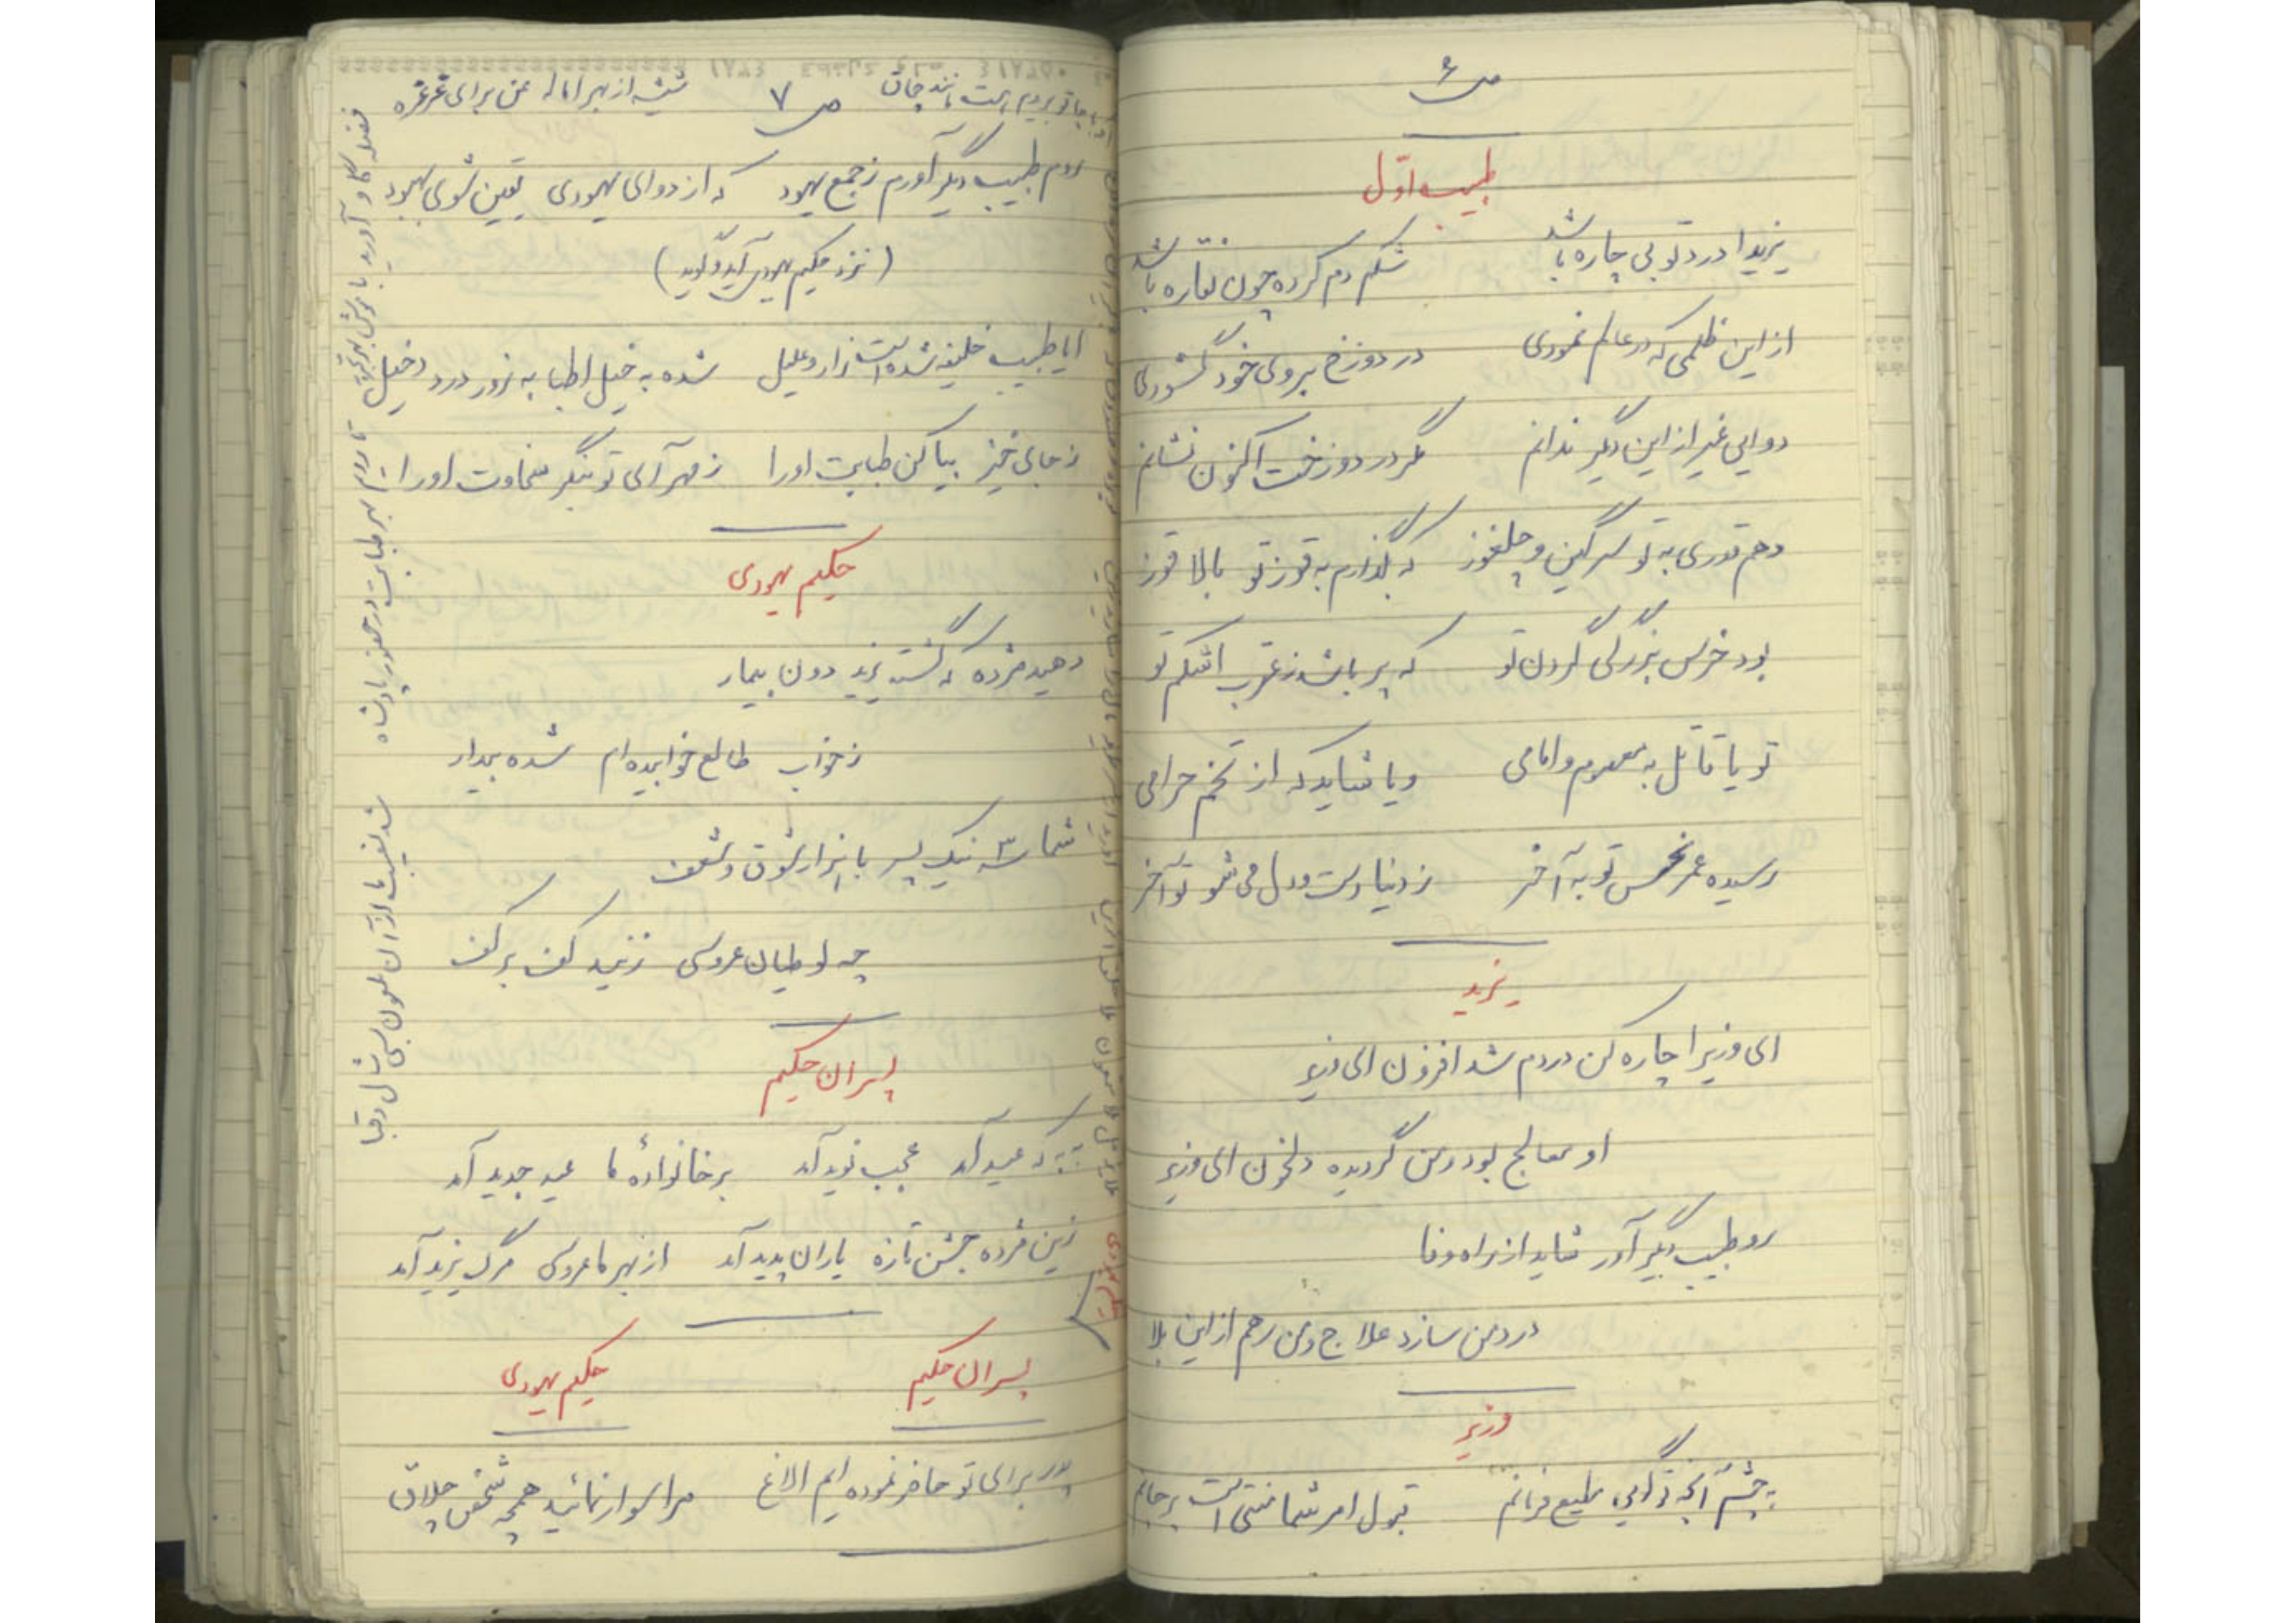 ص ۶
طبیب اوّل
یزیدا درد تو بی چاره باشد شکم دم کرده چون نقاره باشد
از این ظلمی که در عالم نمودی در دوزخ بروی خود گشودی
دوایی غیر از این دیگر ندانم مگر در دوزخت اکنون نشانم
دهم قدری به تو سرگین و چلغوز که بگذارم به قوز تو بالا قوز
بود خرس بزرگی گردن تو که پر باشد ز عقرب اشکم تو
تو یا قاتل به معصوم و امامی و یا شاید که از تخم حرامی
رسیده عمر نحس تو به آخر ز دنیا دست و دل می شو تو آخر
یزید
ای وزیرا چاره کن دردم شد افزون ای وزیر
او معالج بود و من گردیده دلخون ای وزیر
رو طبیب دیگر آور شاید از راه وفا
درد من سازد علاج و من رهم از این بلا
وزیر
به چشم آنچه تو گویی مطیع فرمانم قبول امر شما منتی است بر جانم
ص ۷
روم طبیب دیگر آورم ز جمع یهود که از دوای یهودی یقین شوی بهبود
(نزد حکیم یهودی آید و گوید)
ایا طبیب خلیفه شده است زار و علیل شده به خیل اطبا به زور درد دخیل
ز جای خیز بیا کن طبابت او را ز مهر آی تو بنگر سخاوت او را
حکیم یهودی
دهید مژده که گشته یزید دون بیمار
ز خواب طالع خوابیده ام شده بیدار
شما سه نیک پسر با هزار شوق و شعف
چه لوطیان عروسی زنید کف بر کف
پسران حکیم
که عید آمد عجب نوید آمد بر خانوادهٔ ما عید جدید آمد
زین مژده جشن تازه یاران پدید آمد از بهر ما عروسی مرگ یزید آمد
پسران حکیم حکیم یهودی
پدر برای تو حاضر نموده ایم الاغ مرا سوار نمائید همچه شخص چلاق
فضله گاو آورید با موش بهر تجربه تا روم بهر طبابت در حضور پادشاه
شد نصیب ما از آن ملعون بسی شال و قبا